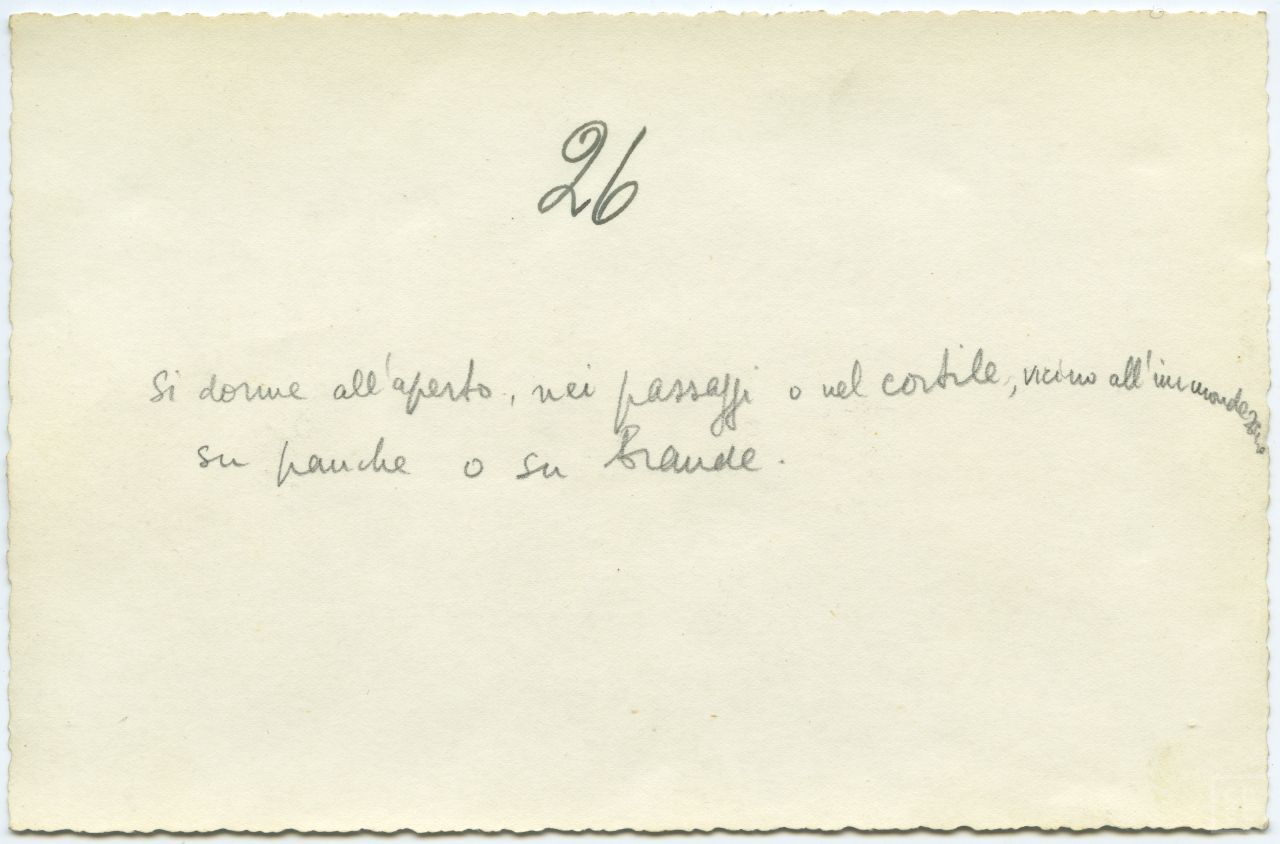 26
Si dorme all'aperto, nei passaggi o nel cortile, vicino all'immondezzaio
su panche o su brande.